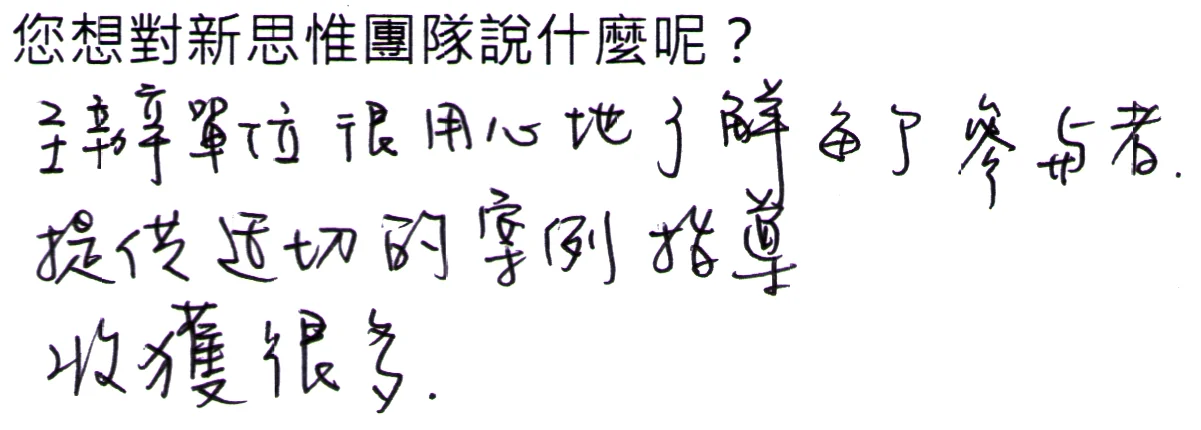 您想對新思惟團隊說什麼呢？
主辦單位很用心地了解每个參与者.
提供适切的案例指導
收獲很多.